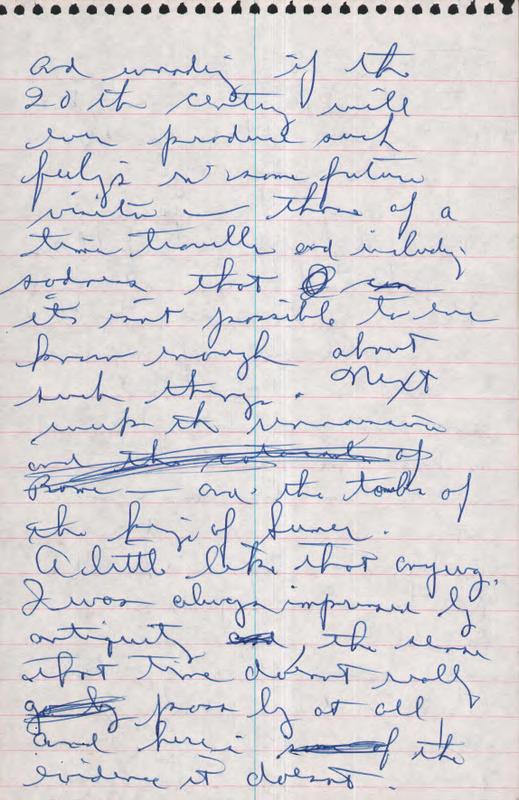 and wondering if the
20th century will
ever produce such
feelings in some future
visitor — those of a
time traveller and including
sadness that
it's isn't possible to ever
know enough about
such things. Next
week the
and the of
Rome — and the tombs of
the kings of Sumer.
A little like that anyway.
I was always impressed by
antiquity and, the sense
that time doesn't really
pass by at all,
and here's the
evidence it doesn't.